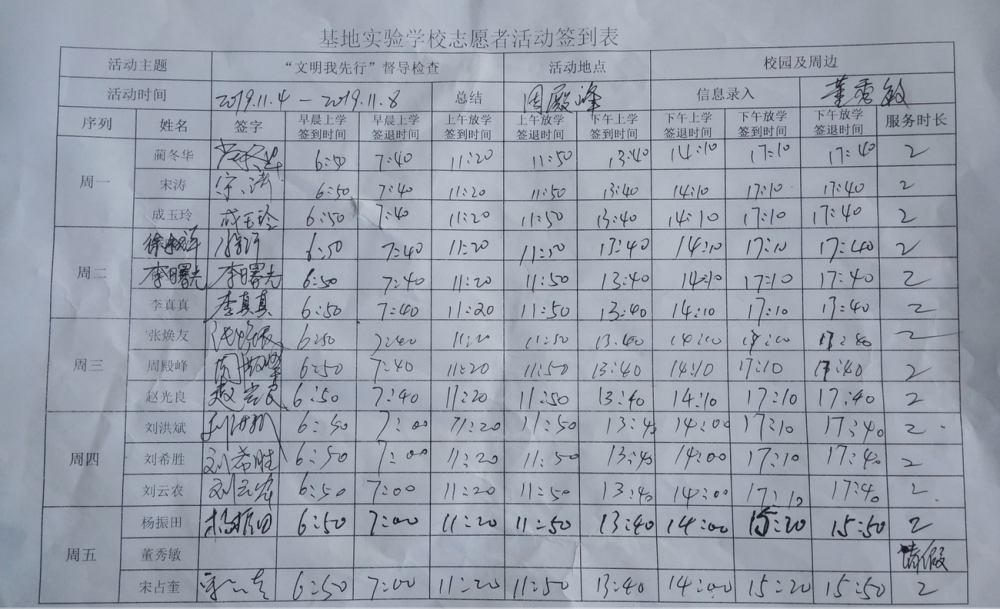 基地实验学校志愿者活动签到表
活动主题 “文明我先行”督导检查 活动地点 校园及周边
活动时间 2019.11.4 - 2019.11.8 总结 周殿峰 信息录入 董秀敏
序列 姓名 签字 早晨上学签到时间 早晨上学签退时间 上午放学签到时间 上午放学签退时间 下午上学签到时间 下午上学签退时间 下午放学签到时间 下午放学签退时间 服务时长
周一 蔺冬华 6:50 7:40 11:20 11:50 13:40 14:10 17:10 17:40 2
宋涛 宋涛 6:50 7:40 11:20 11:50 13:40 14:10 17:10 17:40 2
成玉玲 成玉玲 6:50 7:40 11:20 11:50 13:40 14:10 17:10 17:40 2
周二 6:50 7:40 11:20 11:50 17:40 14:10 17:10 17:40 2
李曙光 李曙光 6:50 7:40 11:20 11:50 13:40 14:10 17:10 17:40 2
李真真 李真真 6:50 7:40 11:20 11:50 13:40 14:10 17:10 13:40 2
周三 张焕友 6:50 7:40 11:20 11:50 13:40 14:10 17:10 17:40 2
周殿峰 周殿峰 6:50 7:40 11:20 11:50 13:40 14:10 17:10 17:40 2
赵光良 6:50 7:40 11:20 11:50 13:40 14:10 17:10 17:40 2
周四 刘洪斌 6:50 7:00 11:20 11:50 13:40 14:00 17:10 17:40 2
刘希胜 刘希胜 6:50 7:00 11:20 11:50 13:40 14:00 17:10 17:40 2
刘云农 刘云农 6:50 7:00 11:20 11:50 13:40 14:00 17:10 17:40 2
周五 杨振田 杨振田 6:50 7:00 11:20 11:50 13:40 14:00 15:20 15:50 2
董秀敏 请假
宋占奎 6:50 7:00 11:20 11:50 13:40 14:00 15:20 15:50 2